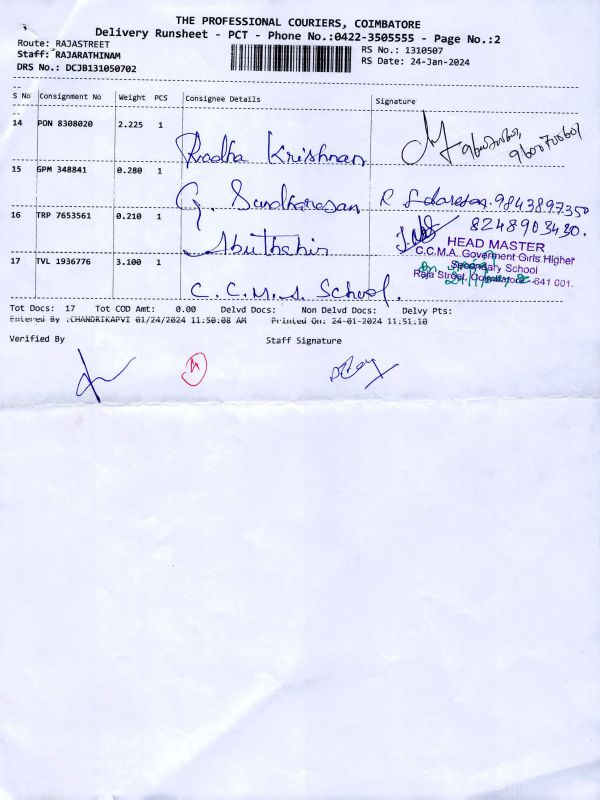 THE PROFESSIONAL COURIERS, COIMBATORE
Delivery Runsheet - PCT - Phone No.:0422-3505555 - Page No.:2
Route: RAJASTREET
RS No.: 1310507
Staff: RAJARATHINAM
RS Date: 24-Jan-2024
DRS No.: DCJB131050702
S No Consignment No Weight PCS Consignee Details Signature
14 PON 8308020 2.225 1 Radha Krishnan 9600700601
15 GPM 348841 0.280 1 G. Sundharesan 9843897350
16 TRP 7653561 0.210 1 Abuthahir 8248903430.
HEAD MASTER
C.C.M.A. Goverment Girls Higher
Secondary School
Raja Street, Coimbatore -641 001.
17 TVL 1936776 3.100 1 C.C.M.A School.
Tot Docs: 17 Tot COD Amt: 0.00 Delvd Docs: Non Delvd Docs: Delvy Pts:
Entered By :CHANDRIKAPVI 01/24/2024 11:50:08 AM Printed On: 24-01-2024 11:51:10
Verified By Staff Signature